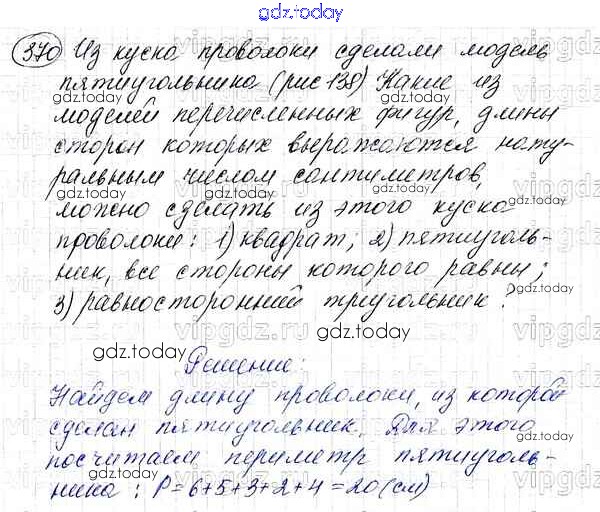 gdz.today
370 Из куска проволоки сделали модель
пятиугольника (рис 138) Какие из
моделей перечисленных фигур, длины
сторон которых выражаются нату-
ральным числом сантиметров,
можно сделать из этого куска
проволоки: 1) квадрат; 2) пятиуголь-
ник, все стороны которого равны;
3) равносторонний треугольник?
Решение:
Найдем длину проволоки, из которой
сделан пятиугольник. Для этого
посчитаем периметр пятиуголь-
ника: P = 6+5+3+2+4 = 20 (см)